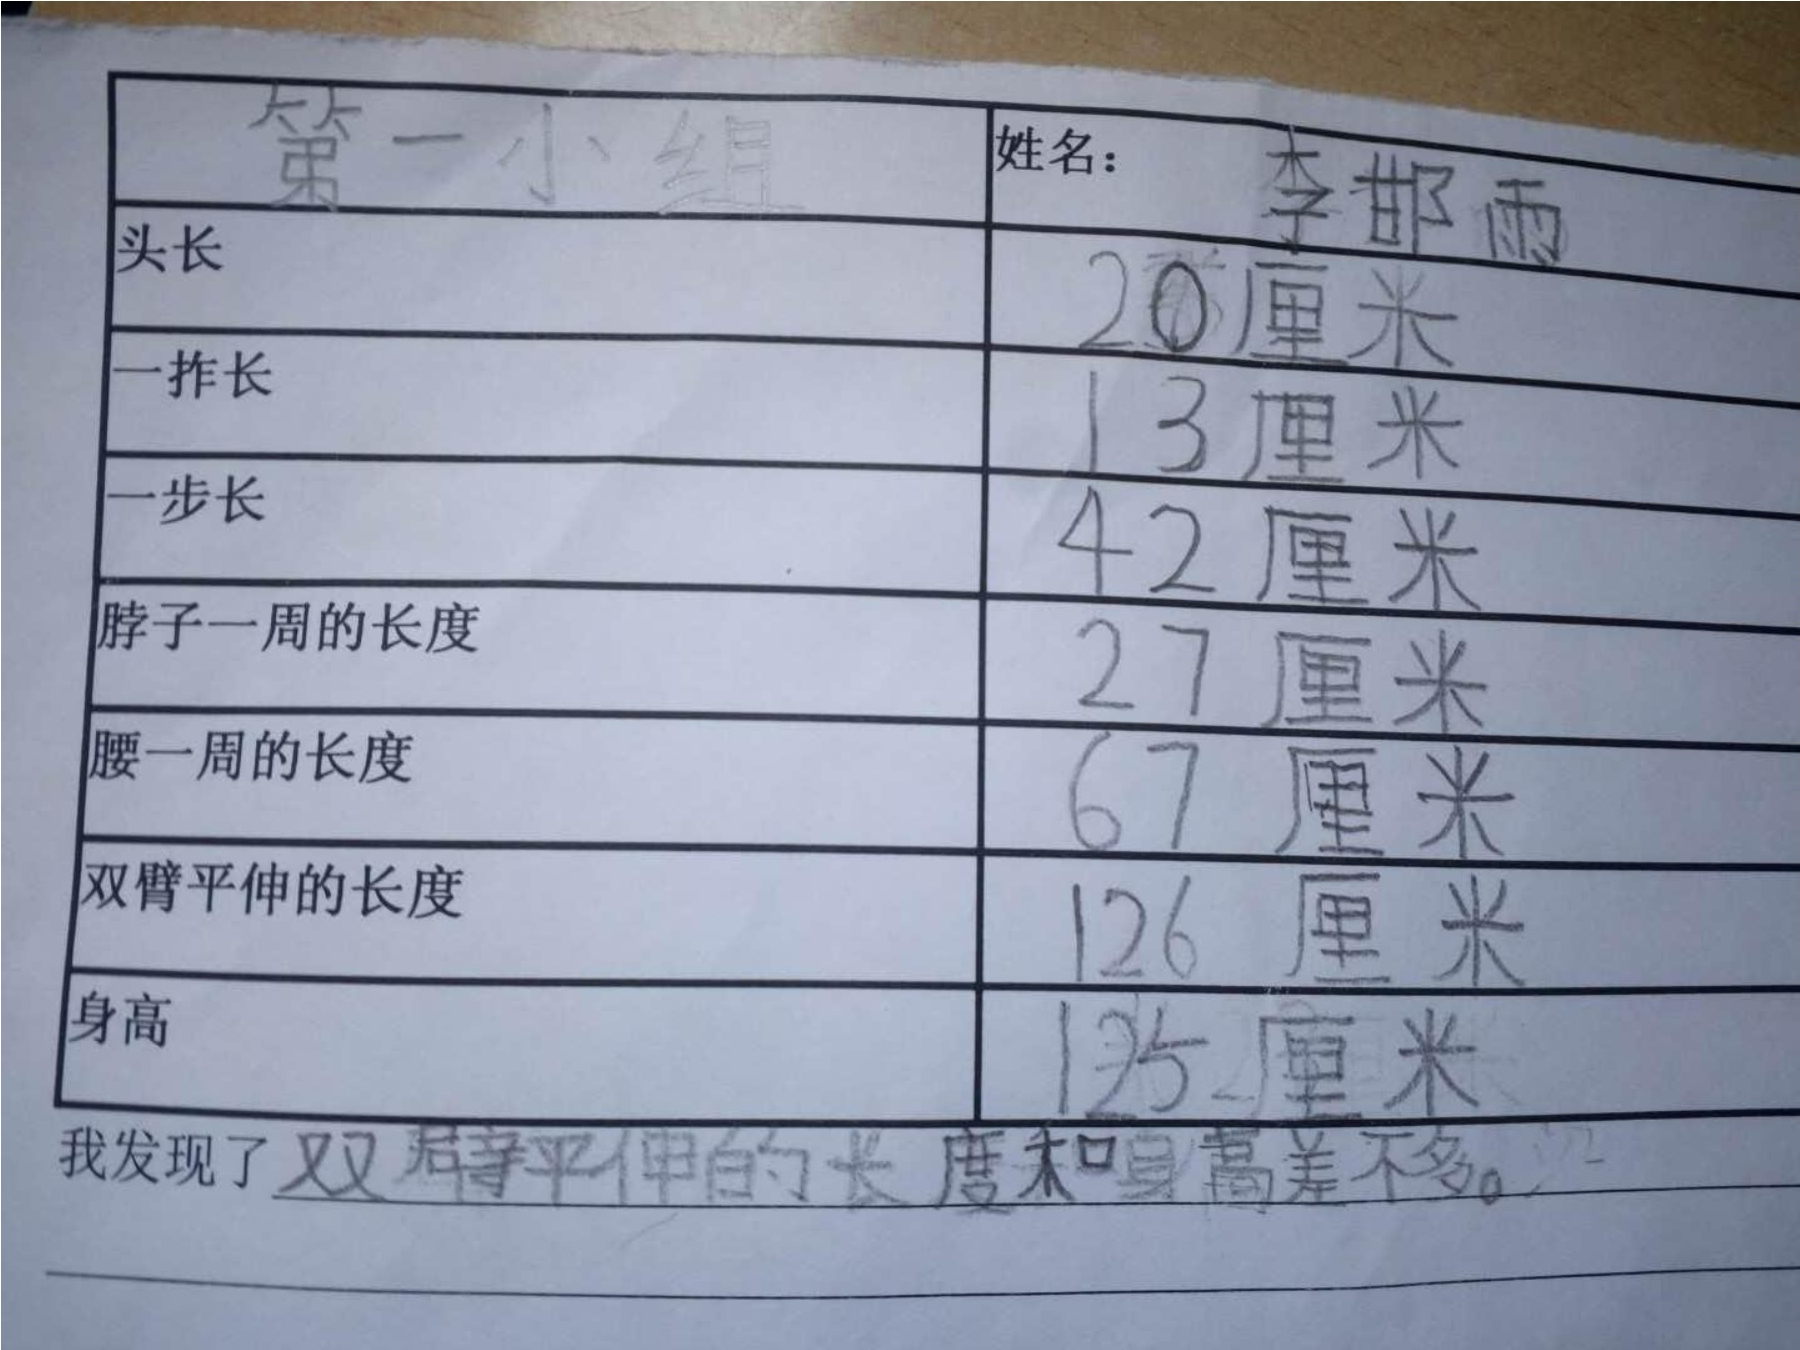 第一小组 姓名： 李邯雨
头长 20厘米
一拃长 13厘米
一步长 42厘米
脖子一周的长度 27厘米
腰一周的长度 67厘米
双臂平伸的长度 126厘米
身高 125厘米
我发现了双臂平伸的长度和身高差不多。